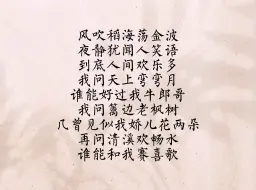 风吹稻海荡金波
夜静犹闻人笑语
到底人间欢乐多
我问天上弯弯月
谁能好过我牛郎哥
我问篱边老枫树
几曾见似我娇儿花两朵
再问清溪欢畅水
谁能和我赛喜歌